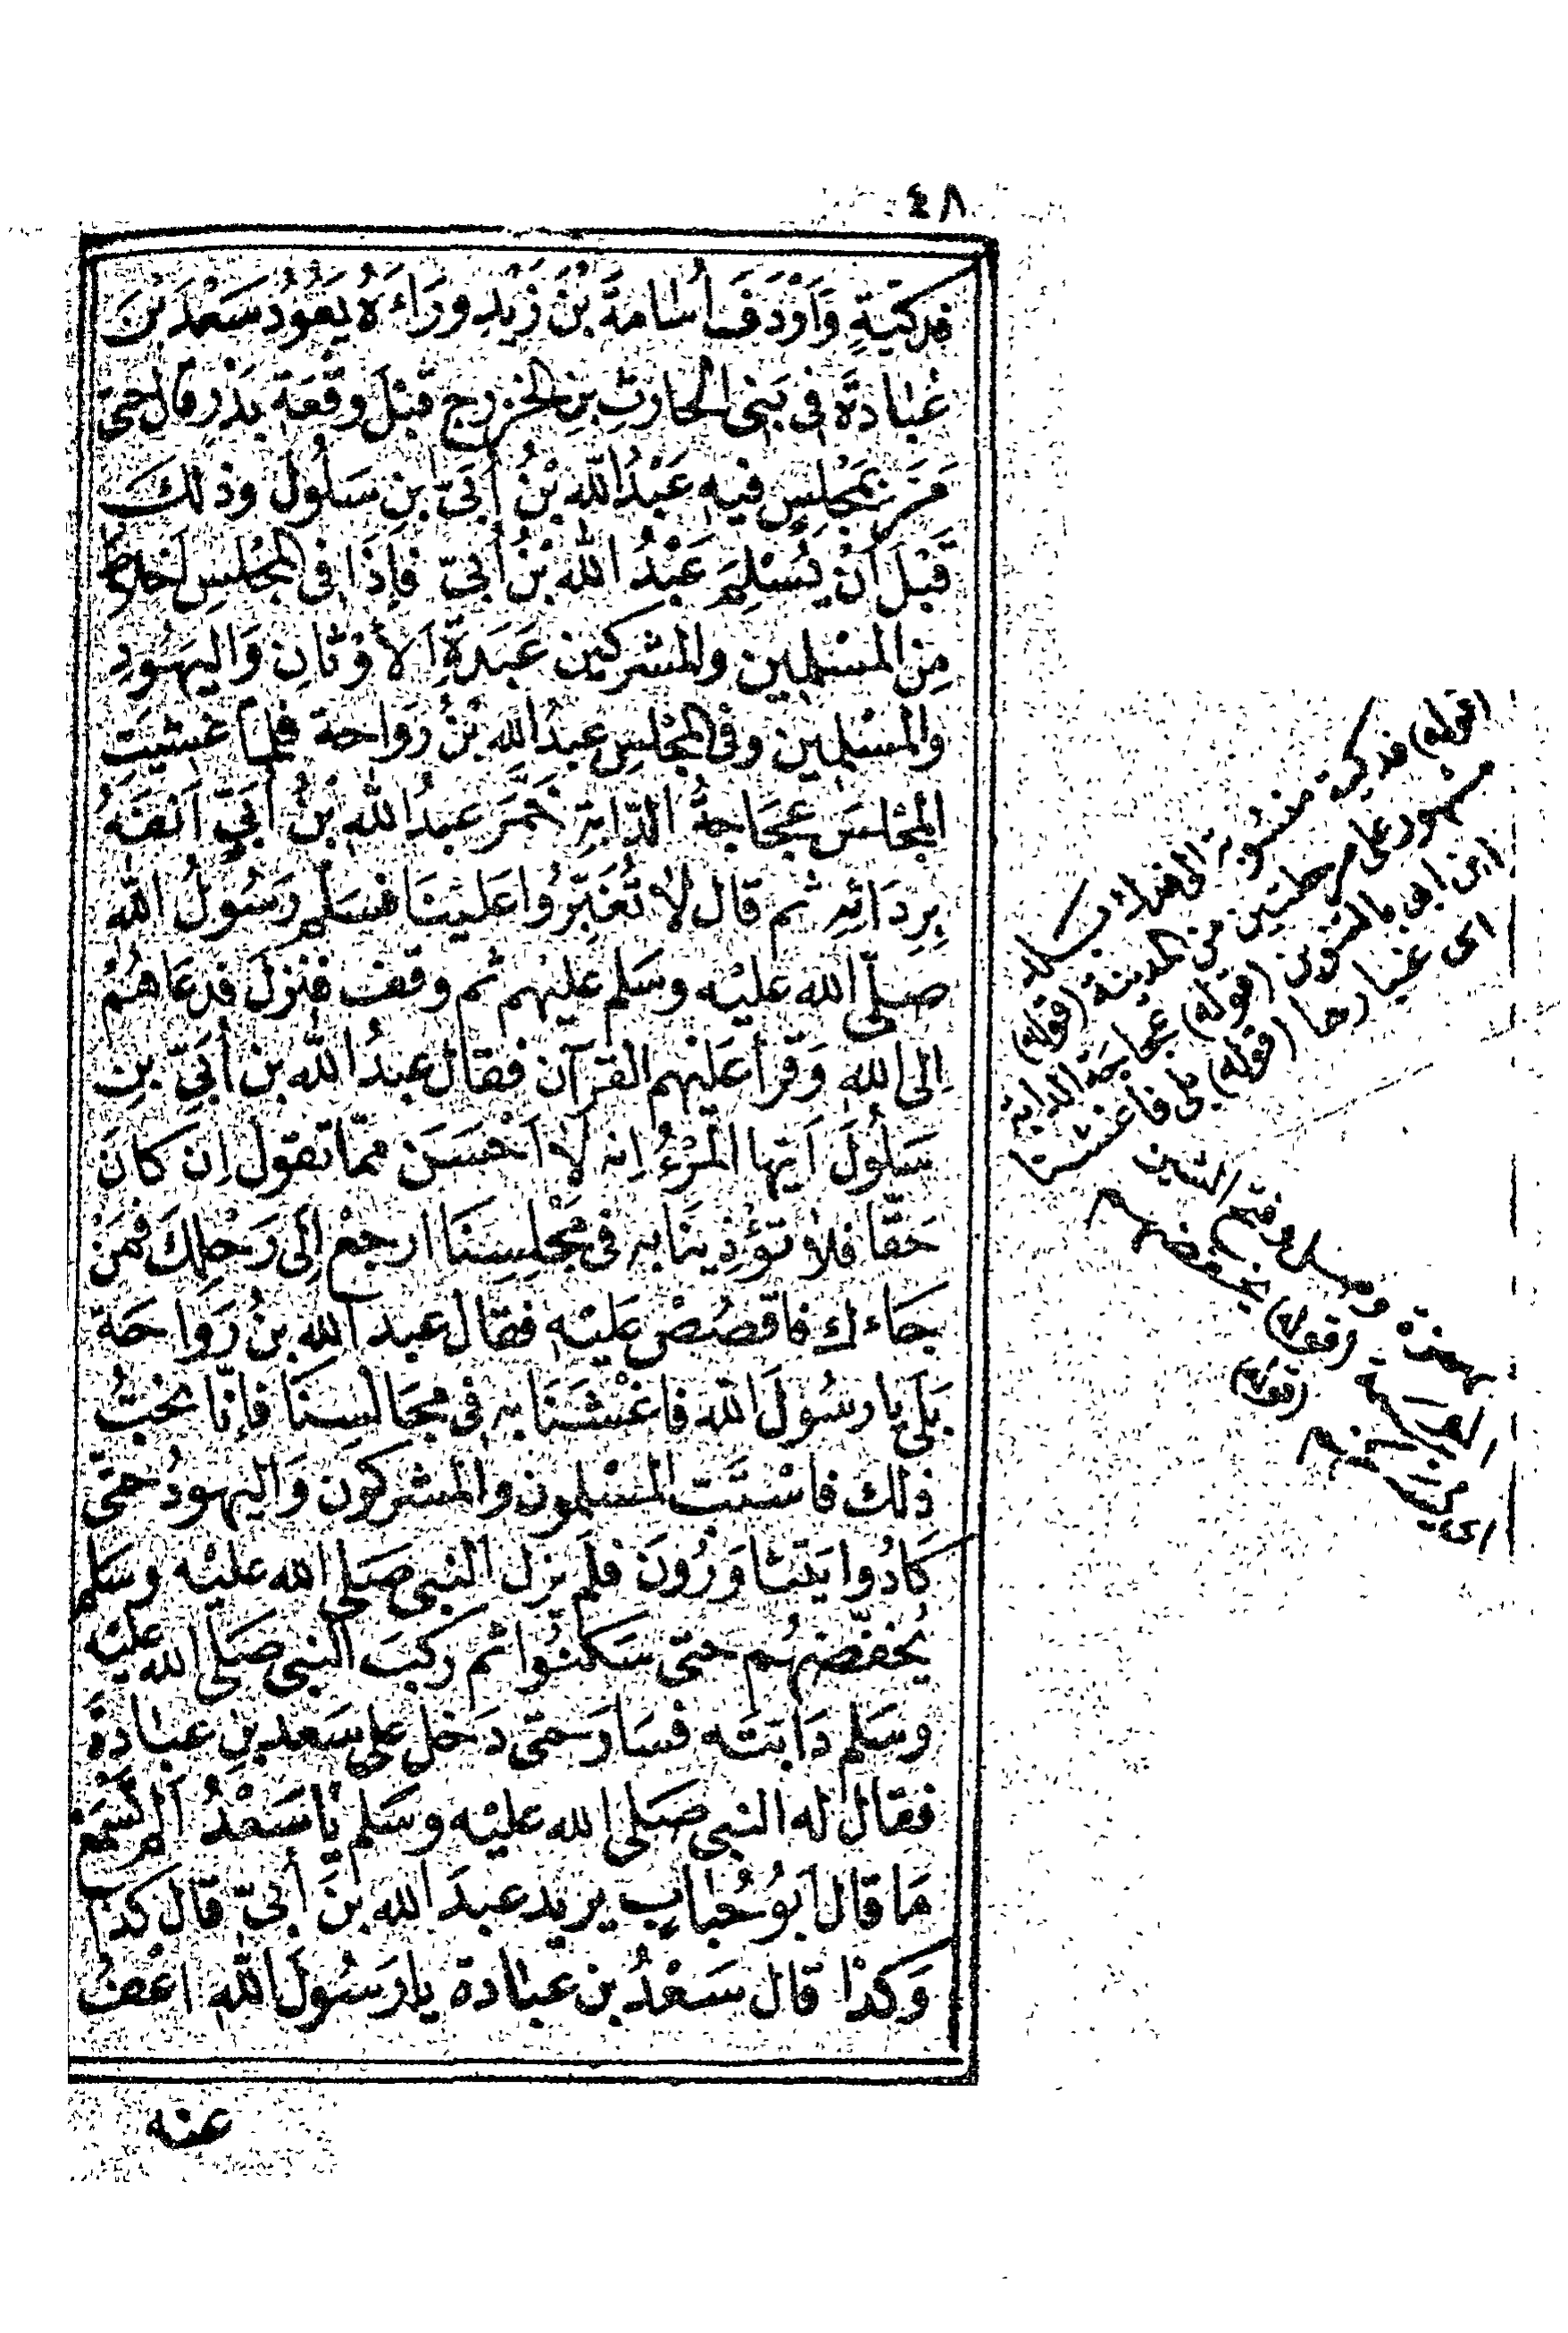 ٤٨
فدكيةٍ وَاَرْدَفَ أُسَامةَ بْنَ زَيْدٍ ورَاءَهُ يَعُودُ سَعْدَ بْنَ
عُبَادَةَ في بَنِى الحَارثِ بنِ الخزرج قبْلَ وقْعَة بَدْرٍ قال حتى
مَرَّ بَمجْلِسٍ فيه عَبْدُ اللّه بْنُ أُبَىّ ابن سَلُولَ وذلكَ
قَبْلَ أنْ يُسْلِمَ عَبْدُ اللّه بْنُ أُبَىّ فإذَا فى المجْلسِ أخلاطٌ
مِنَ المسْلمِين والمشركين عَبَدَةِ اَلأَوْثانِ وَاليهُودِ
والمسْلِمينَ وفى المجْلسِ عبدُ اللّهِ بْنُ رَوَاحة فلما غشيَتِ
المجْلسَ عجَاجةُ الدّابةِ خَمَّرَ عبدُ اللّه بْنُ أُبَىّ اَنفَهُ
بِرِدَائهِ ثم قال لاَ تُغَبِّرُوا علَيْنَا فسَلم رَسُولُ اللّه
صلّى اللّه عليْه وسَلم عليْهم ثم وقف فنزَلَ فدعَاهُمْ
الى اللّهِ وَقرأ عَلَيْهم القرآن فقال عبدُ اللّه بن أُبَىّ بن
سَلُولَ اَيّها المرْءُ انه لاَ اَحْسَنَ ممّا تقول اِن كانَ
حَقّا فلا تؤْذِينَا به فى مَجْلِسِنَا ارجعْ إلى رَحْلِكَ فمَنْ
جَاءك فاقْصُصْ عَليْه فقال عبد اللّه بنُ رَوَاحَة
بَلَى يا رسُولَ اللّه فاغْشَنَا به فى مجَالسِنَا فإنّا نحبُّ
ذلك فاسْتَبَّ المسْلمون والمشركون وَاليهودُ حتّى
كَادُوا يَتَثَاوَرُونَ فلم يزل النبى صَلى اللّه عليْه وسَلم
يُخفّضهُم حتى سَكنُوا ثم رَكبَ النبى صَلى اللّه عليْه
وسَلم دَابتَه فسَارَ حتى دَخل على سَعد بنِ عبادَةَ
فقال له النبى صَلى اللّه عليْه وسَلم يَا سَعْدُ اَلم تسْمَعْ
مَا قال اَبُو حُبابٍ يريد عبدَ اللّه بنَ أُبىّ قال كذَا
وَكذَا قال سَعْدُ بن عبَادة يا رَسُولَ اللّه اعْفُ
عنه
(قوله) فدكية منسوبة الى فدك بلد
مشهور على مرحلتين من المدينة (قوله)
ابن ابى بالتنوين (قوله) عجاجة الدابة
اى غبارها (قوله) فاغشنا
بهمزة وصل وفتح الشين
المعجمة (قوله) يخفضهم
اى يسكنهم (قوله)